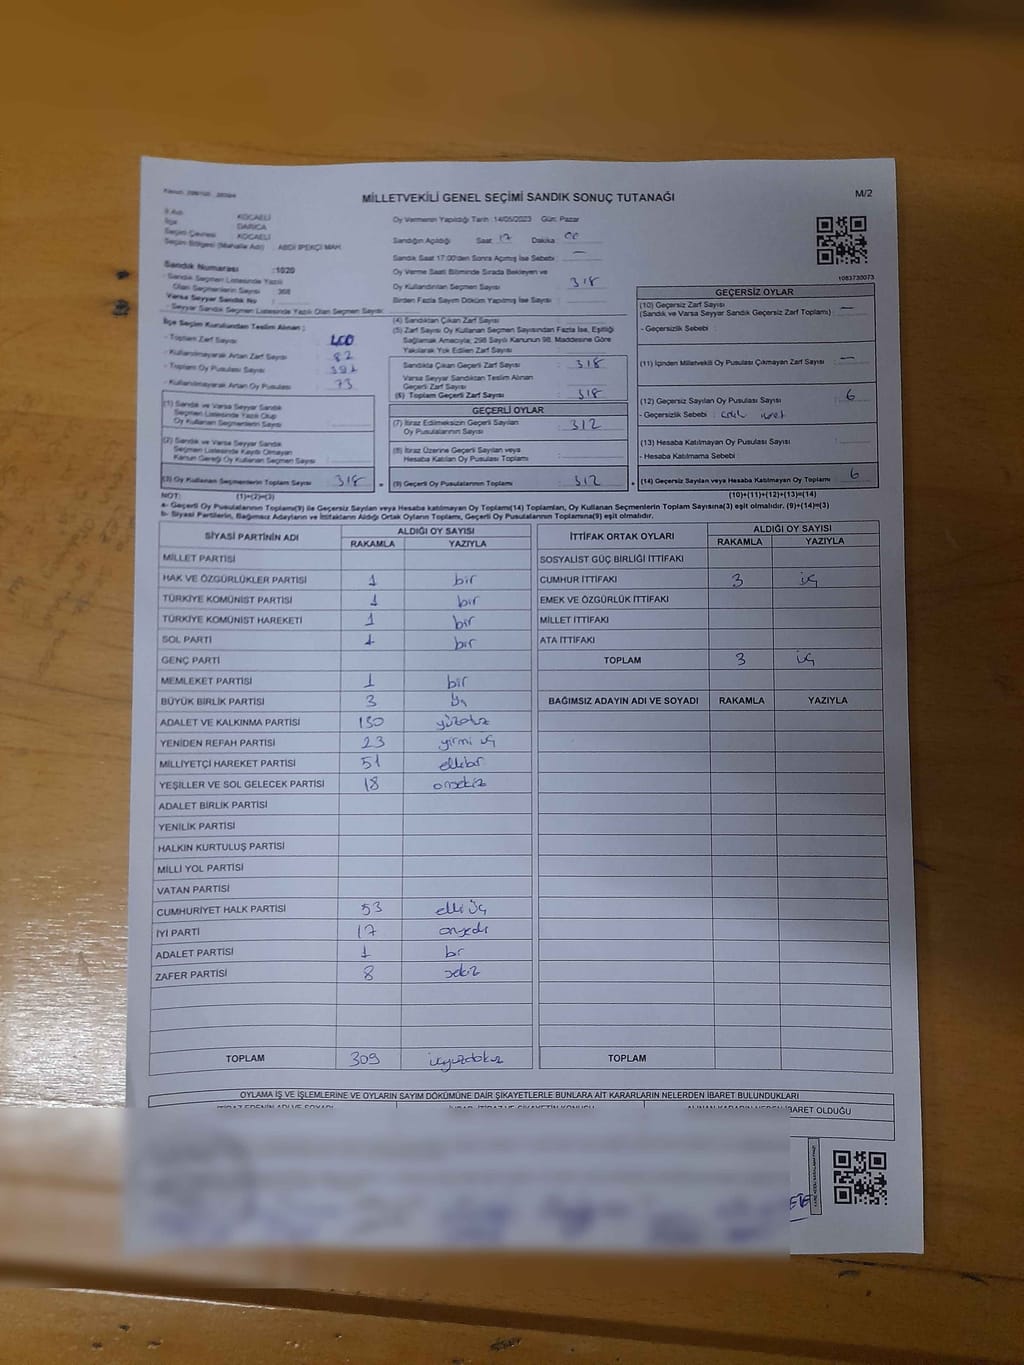 MİLLETVEKİLİ GENEL SEÇİMİ SANDIK SONUÇ TUTANAĞI
M/2
İl Adı KOCAELİ
İlçe DARICA
Seçim Çevresi KOCAELİ
Seçim Bölgesi (Mahalle Adı) : ABDİ İPEKÇİ MAH.
Oy Vermenin Yapıldığı Tarih :14/05/2023 Gün: Pazar
Sandığın Açıldığı Saat 17 Dakika 00
Sandık Saat 17:00'den Sonra Açılmış İse Sebebi : —
Oy Verme Saati Bitiminde Sırada Bekleyen ve
Oy Kullandırılan Seçmen Sayısı : 318
Birden Fazla Sayım Döküm Yapılmış İse Sayısı :
1083730073
Sandık Numarası :1020
- Sandık Seçmen Listesinde Yazılı
Olan Seçmenlerin Sayısı
Varsa Seyyar Sandık No :
- Seyyar Sandık Seçmen Listesinde Yazılı Olan Seçmen Sayısı:
İlçe Seçim Kurulundan Teslim Alınan ;
- Toplam Zarf Sayısı : 400
- Kullanılmayarak Artan Zarf Sayısı : 82
- Toplam Oy Pusulası Sayısı : 391
- Kullanılmayarak Artan Oy Pusulası : 73
(1) Sandık ve Varsa Seyyar Sandık
Seçmen Listesinde Yazılı Olup
Oy Kullanan Seçmenlerin Sayısı :
(2) Sandık ve Varsa Seyyar Sandık
Seçmen Listesinde Kayıtlı Olmayan
Kanun Gereği Oy Kullanan Seçmen Sayısı :
(3) Oy Kullanan Seçmenlerin Toplam Sayısı : 318
(4) Sandıktan Çıkan Zarf Sayısı :
(5) Zarf Sayısı Oy Kullanan Seçmen Sayısından Fazla İse, Eşitliği
Sağlamak Amacıyla; 298 Sayılı Kanunun 98. Maddesine Göre
Yakılarak Yok Edilen Zarf Sayısı :
Sandıkta Çıkan Geçerli Zarf Sayısı : 318
Varsa Seyyar Sandıktan Teslim Alınan
Geçerli Zarf Sayısı :
(6) Toplam Geçerli Zarf Sayısı : 318
GEÇERLİ OYLAR
(7) İtiraz Edilmeksizin Geçerli Sayılan
Oy Pusulalarının Sayısı : 312
(8) İtiraz Üzerine Geçerli Sayılan veya
Hesaba Katılan Oy Pusulası Toplamı :
(9) Geçerli Oy Pusulalarının Toplamı : 312
GEÇERSİZ OYLAR
(10) Geçersiz Zarf Sayısı
(Sandık ve Varsa Seyyar Sandık Geçersiz Zarf Toplamı) : —
- Geçersizlik Sebebi :
(11) İçinden Milletvekili Oy Pusulası Çıkmayan Zarf Sayısı : —
(12) Geçersiz Sayılan Oy Pusulası Sayısı : 6
- Geçersizlik Sebebi :
(13) Hesaba Katılmayan Oy Pusulası Sayısı :
- Hesaba Katılmama Sebebi :
(14) Geçersiz Sayılan veya Hesaba Katılmayan Oy Toplamı : 6
NOT: (1)+(2)=(3) (10)+(11)+(12)+(13)=(14)
a- Geçerli Oy Pusulalarının Toplamı(9) ile Geçersiz Sayılan veya Hesaba katılmayan Oy Toplamı(14) Toplamları, Oy Kullanan Seçmenlerin Toplam Sayısına(3) eşit olmalıdır. (9)+(14)=(3)
b- Siyasi Partilerin, Bağımsız Adayların ve İttifakların Aldığı Ortak Oyların Toplamı, Geçerli Oy Pusulalarının Toplamına(9) eşit olmalıdır.
SİYASİ PARTİNİN ADI ALDIĞI OY SAYISI
RAKAMLA YAZIYLA
MİLLET PARTİSİ
HAK VE ÖZGÜRLÜKLER PARTİSİ 1 bir
TÜRKİYE KOMÜNİST PARTİSİ 1 bir
TÜRKİYE KOMÜNİST HAREKETİ 1 bir
SOL PARTİ 1 bir
GENÇ PARTİ
MEMLEKET PARTİSİ 1 bir
BÜYÜK BİRLİK PARTİSİ 3 üç
ADALET VE KALKINMA PARTİSİ 130 yüzotuz
YENİDEN REFAH PARTİSİ 23 yirmi üç
MİLLİYETÇİ HAREKET PARTİSİ 51 ellibir
YEŞİLLER VE SOL GELECEK PARTİSİ 18 onsekiz
ADALET BİRLİK PARTİSİ
YENİLİK PARTİSİ
HALKIN KURTULUŞ PARTİSİ
MİLLİ YOL PARTİSİ
VATAN PARTİSİ
CUMHURİYET HALK PARTİSİ 53 elli üç
İYİ PARTİ 17 onyedi
ADALET PARTİSİ 1 bir
ZAFER PARTİSİ 8 sekiz
TOPLAM 309 üçyüzdokuz
İTTİFAK ORTAK OYLARI ALDIĞI OY SAYISI
RAKAMLA YAZIYLA
SOSYALİST GÜÇ BİRLİĞİ İTTİFAKI
CUMHUR İTTİFAKI 3 üç
EMEK VE ÖZGÜRLÜK İTTİFAKI
MİLLET İTTİFAKI
ATA İTTİFAKI
TOPLAM 3 üç
BAĞIMSIZ ADAYIN ADI VE SOYADI RAKAMLA YAZIYLA
TOPLAM
OYLAMA İŞ VE İŞLEMLERİNE VE OYLARIN SAYIM DÖKÜMÜNE DAİR ŞİKAYETLERLE BUNLARA AİT KARARLARIN NELERDEN İBARET BULUNDUKLARI
İTİRAZ EDENİN ADI VE SOYADI
ALINAN KARARIN NEDEN İBARET OLDUĞU